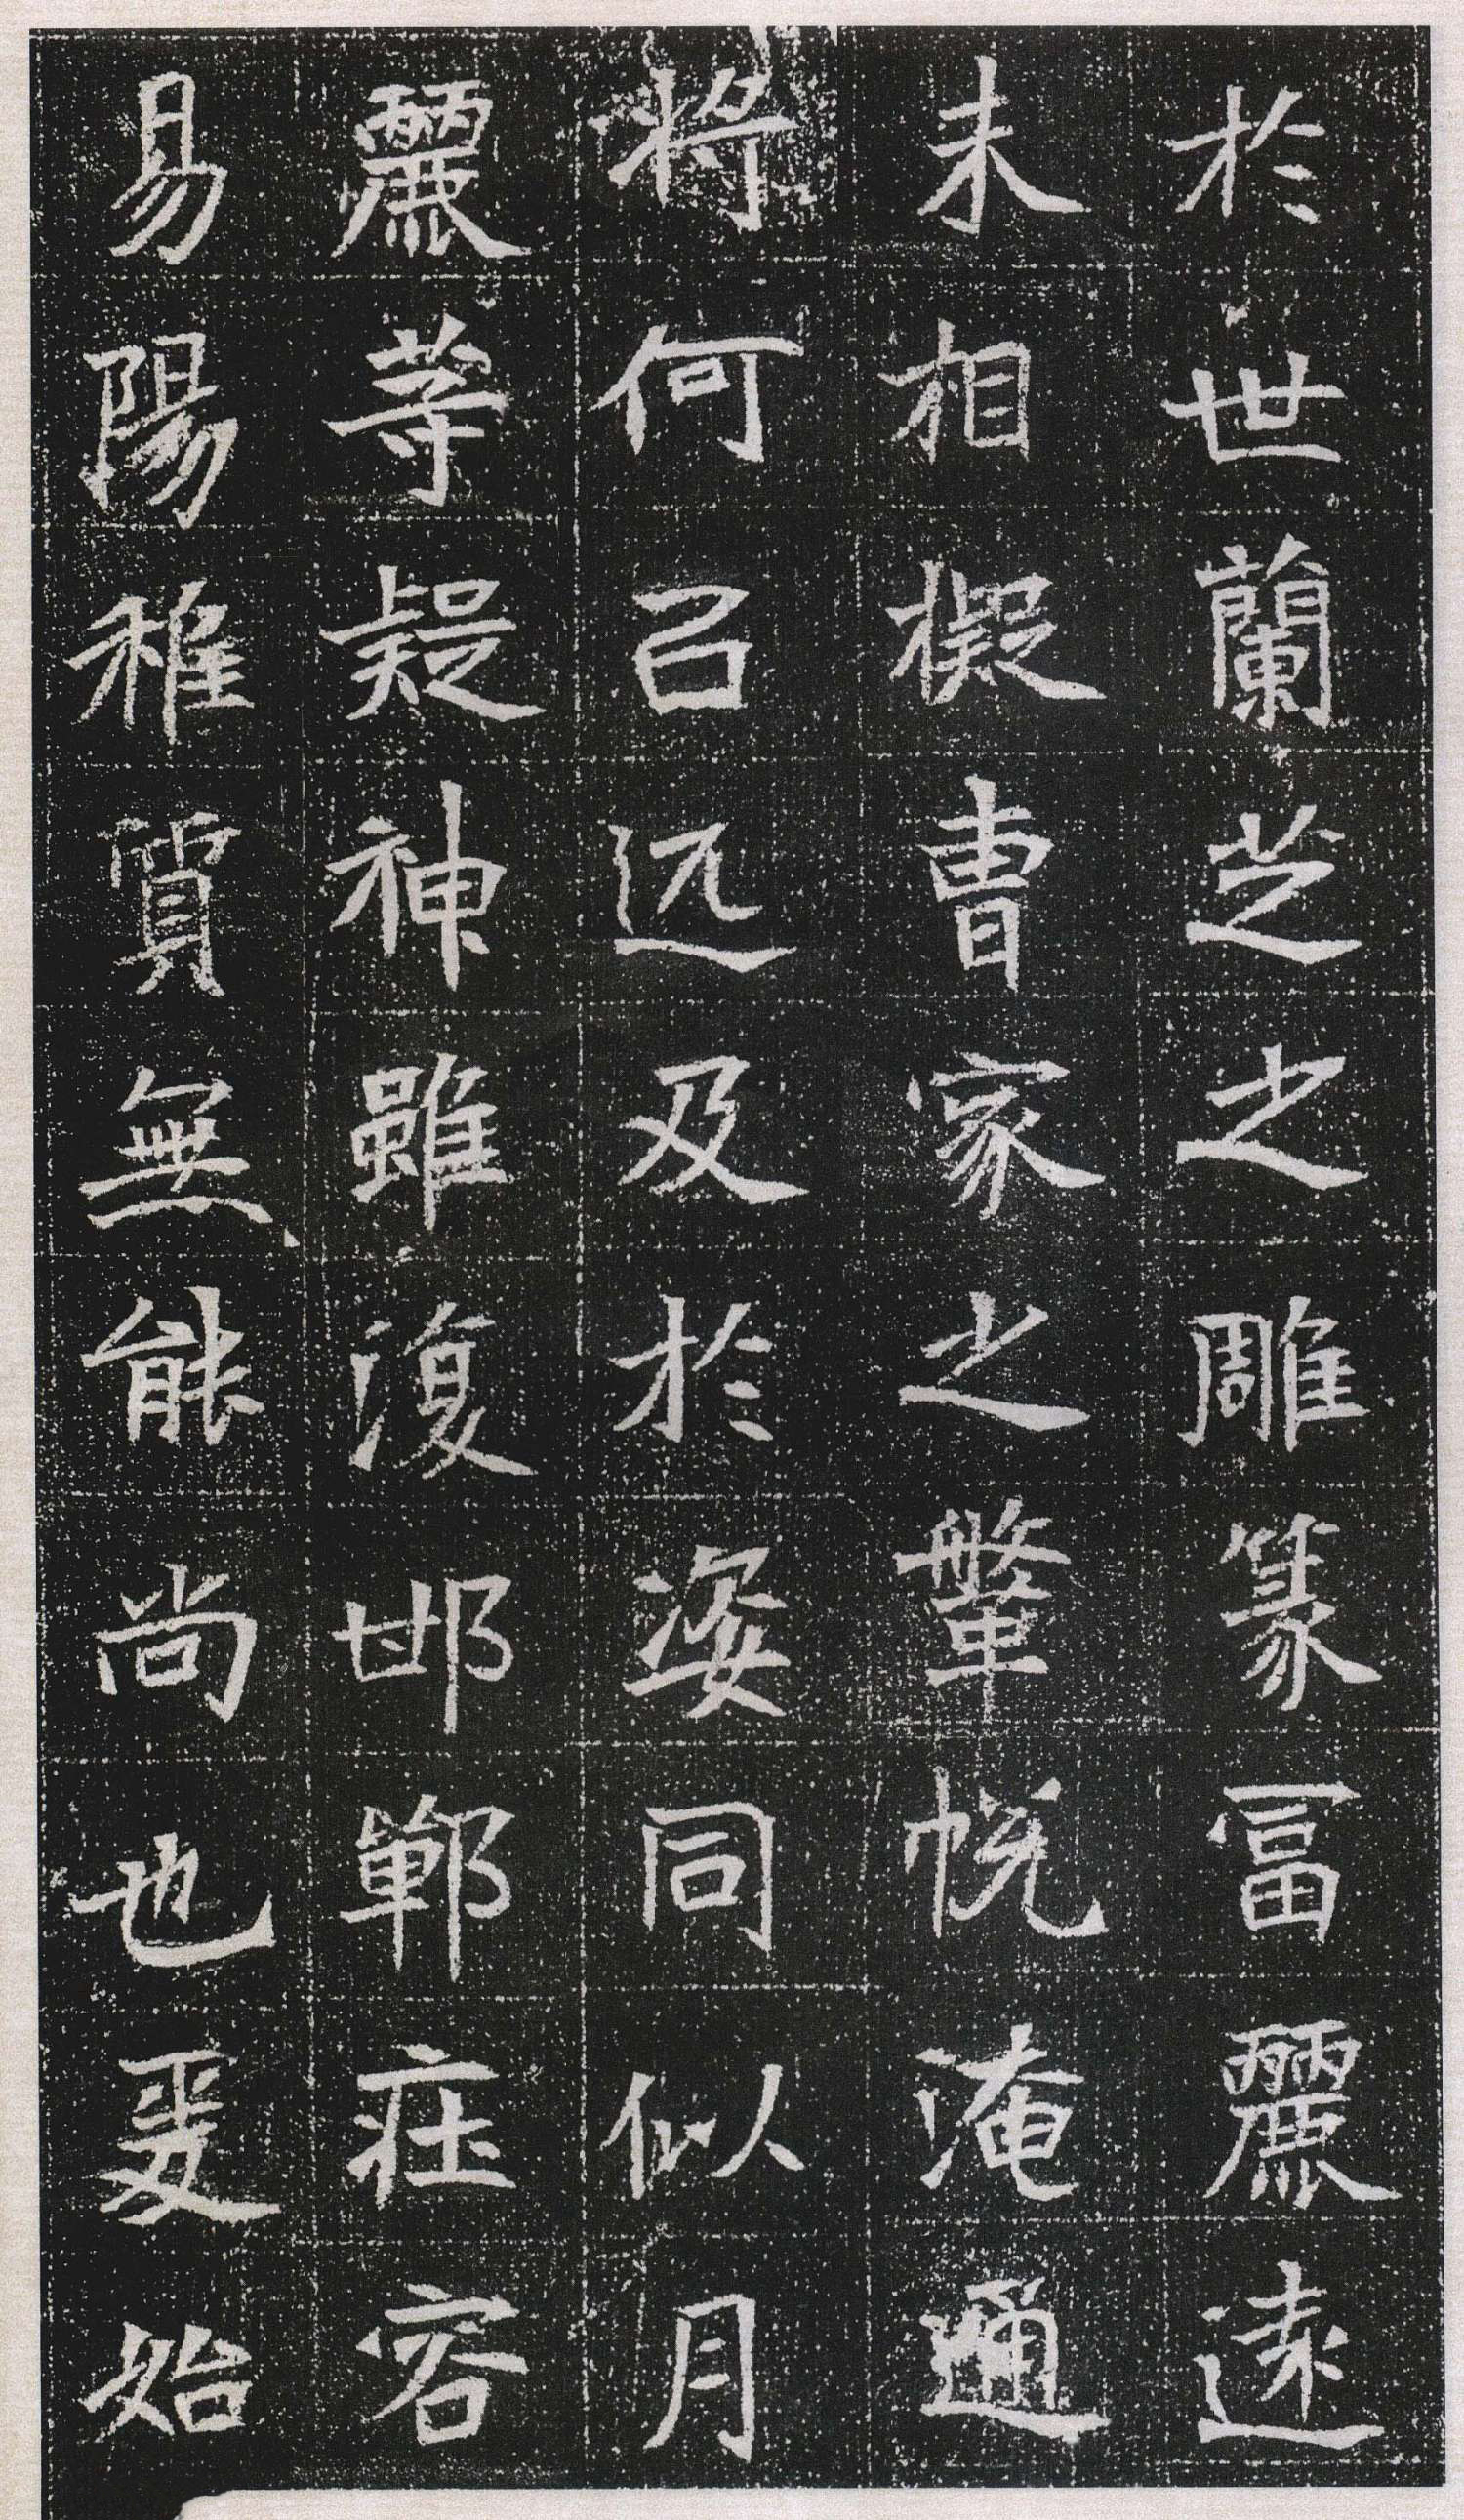 於世蘭芝之雕篆冨麗遠
未相擬曹家之鞶帨淹通
將何㠯远及於姿同似月
麗等疑神雖復邯鄲莊容
易陽稚質無能尚也爰始